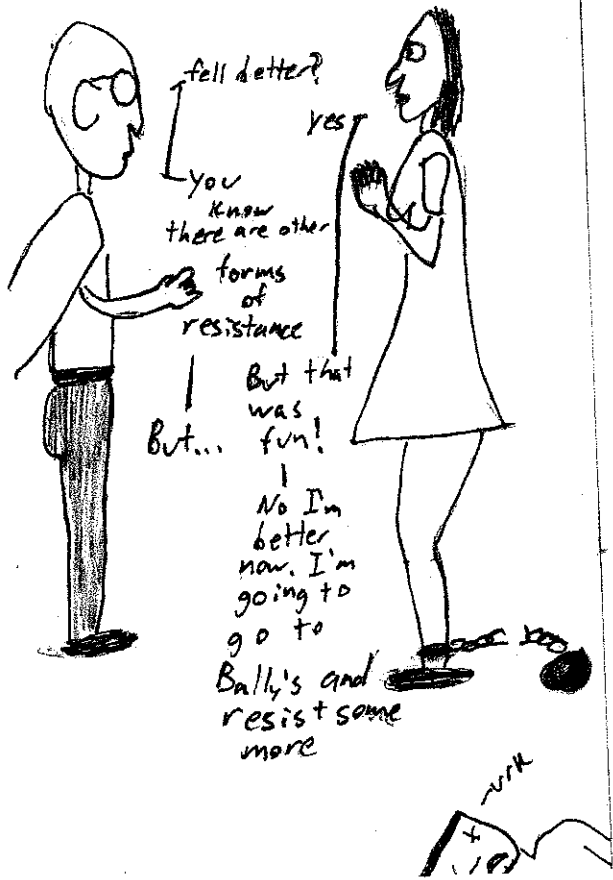 fell better?
yes
You
know
there are other
forms
of
resistance
But that
was
fun!
But...
No I'm
better
now. I'm
going to
go to
Bally's and
resist some
more
~urk